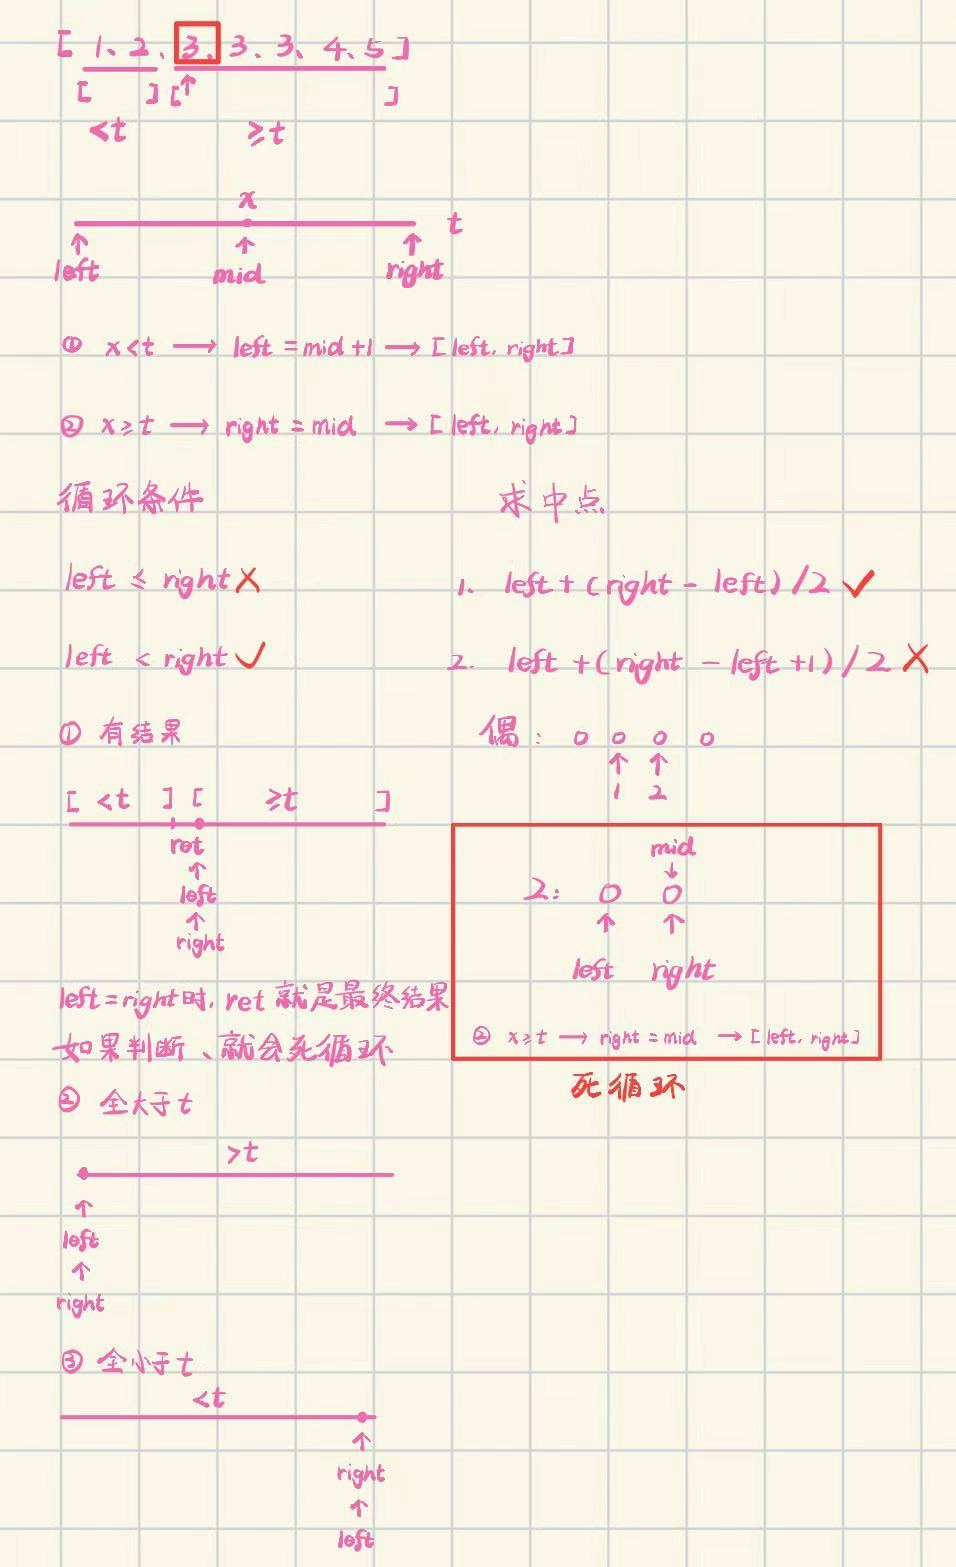 [ 1、2、3、3、3、4、5 ]
[ ] [ ]
<t ≥t
x
t
left mid right
① x<t → left = mid+1 → [left, right]
② x≥t → right = mid → [left, right]
循环条件
left ≤ right ×
left < right ✓
① 有结果
[ <t ] [ ≥t ]
ret
left
right
left=right时, ret 就是最终结果
如果判断、就会死循环
② 全大于t
>t
left
right
③ 全小于t
<t
right
left
求中点
1. left+(right - left)/2 ✓
2. left+(right - left +1)/2 ×
偶: 0 0 0 0
1 2
mid
2: 0 0
left right
② x≥t → right = mid → [left, right]
死循环